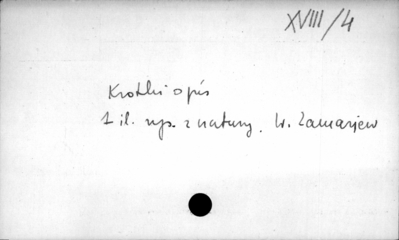 XVIII/4
Krótki opis
1 il. rys. z natury. W. Zamarajew